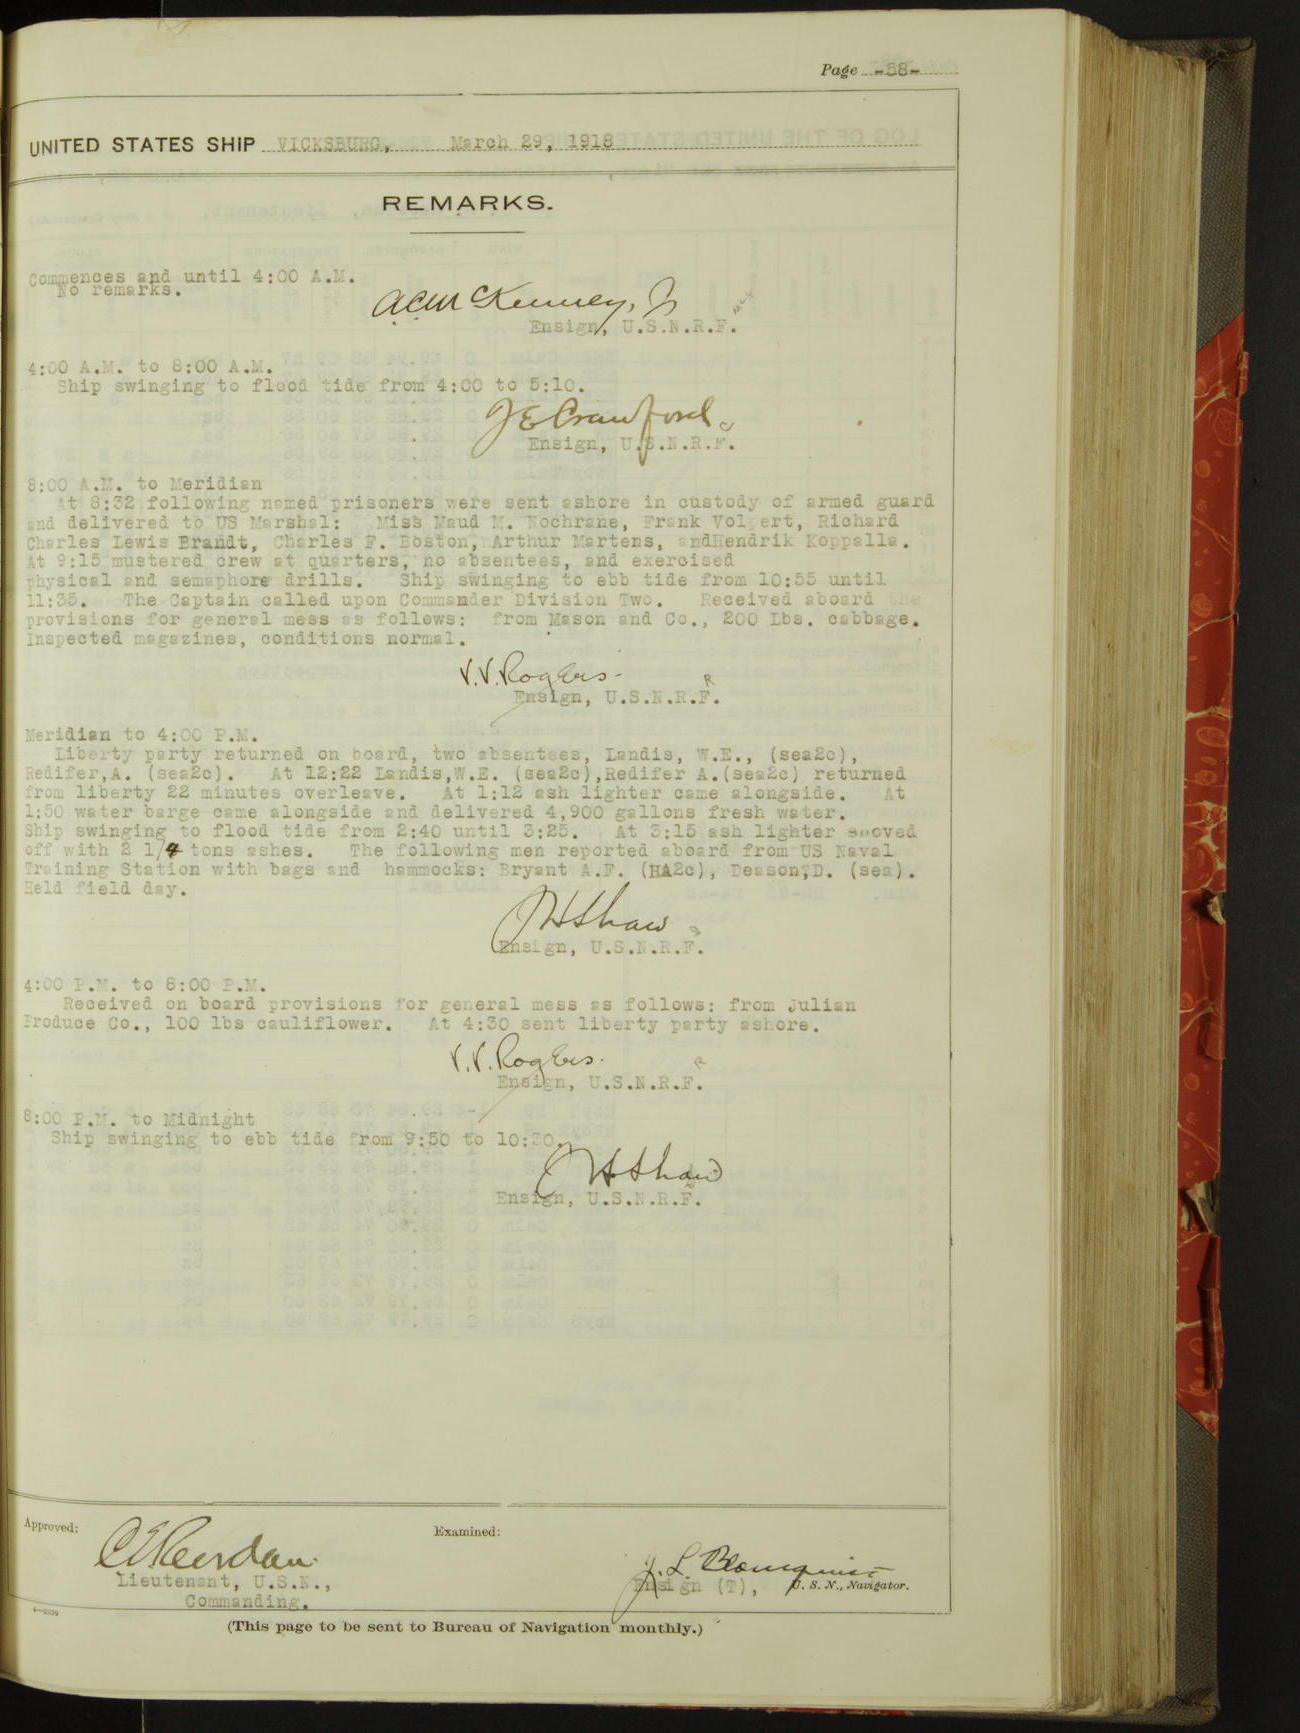 Page -58-
UNITED STATES SHIP VICKSBURG, March 29, 1918
REMARKS.
Commences and until 4:00 A.M.
No remarks.
ACM cKenney, Jr
Ensign, U.S.N.R.F.
4:00 A.M. to 8:00 A.M.
Ship swinging to flood tide from 4:00 to 5:10.
J E Crawford
Ensign, U.S.N.R.F.
8:00 A.M. to Meridian
At 8:32 following named prisoners were sent ashore in custody of armed guard
and delivered to US Marshal: Miss Maud M. Frank Richard
Charles Lewis Brandt, Charles F. Boston, Arthur Martens, andHendrik Koppalla.
At 9:15 mustered crew at quarters, no absentees, and exercised
physical and semaphore drills. Ship swinging to ebb tide from 10:55 until
11:35. The Captain called upon Commander Division Two. Received aboard the
provisions for general mess as follows: from Mason and Co., 200 Lbs. cabbage.
Inspected magazines, conditions normal.
V.V. Rogers
Ensign, U.S.N.R.F.
Meridian to 4:00 P.M.
Liberty party returned on board, two absentees, Landis, W.E., (sea2c),
Redifer,A. (sea2c). At 12:22 Landis,W.E. (sea2c),Redifer A.(sea2c) returned
from liberty 22 minutes overleave. At 1:12 ash lighter came alongside. At
1:50 water barge came alongside and delivered 4,900 gallons fresh water.
Ship swinging to flood tide from 2:40 until 3:25. At 3:15 ash lighter shoved
off with 2 1/4 tons ashes. The following men reported aboard from US Naval
Training Station with bags and hammocks: Bryant A.F. (HA2c), Deason,D. (sea).
Held field day.
JHShaw
Ensign, U.S.N.R.F.
4:00 P.M. to 8:00 P.M.
Received on board provisions for general mess as follows: from Julian
Produce Co., 100 lbs cauliflower. At 4:30 sent liberty party ashore.
V.V. Rogers
Ensign, U.S.N.R.F.
8:00 P.M. to Midnight
Ship swinging to ebb tide from 9:50 to 10:30.
JHShaw
Ensign, U.S.N.R.F.
Approved:
Examined:
J. L. Blomquist
Lieutenant, U.S.N.,
Ensign (T), U. S. N., Navigator.
Commanding.
(This page to be sent to Bureau of Navigation monthly.)